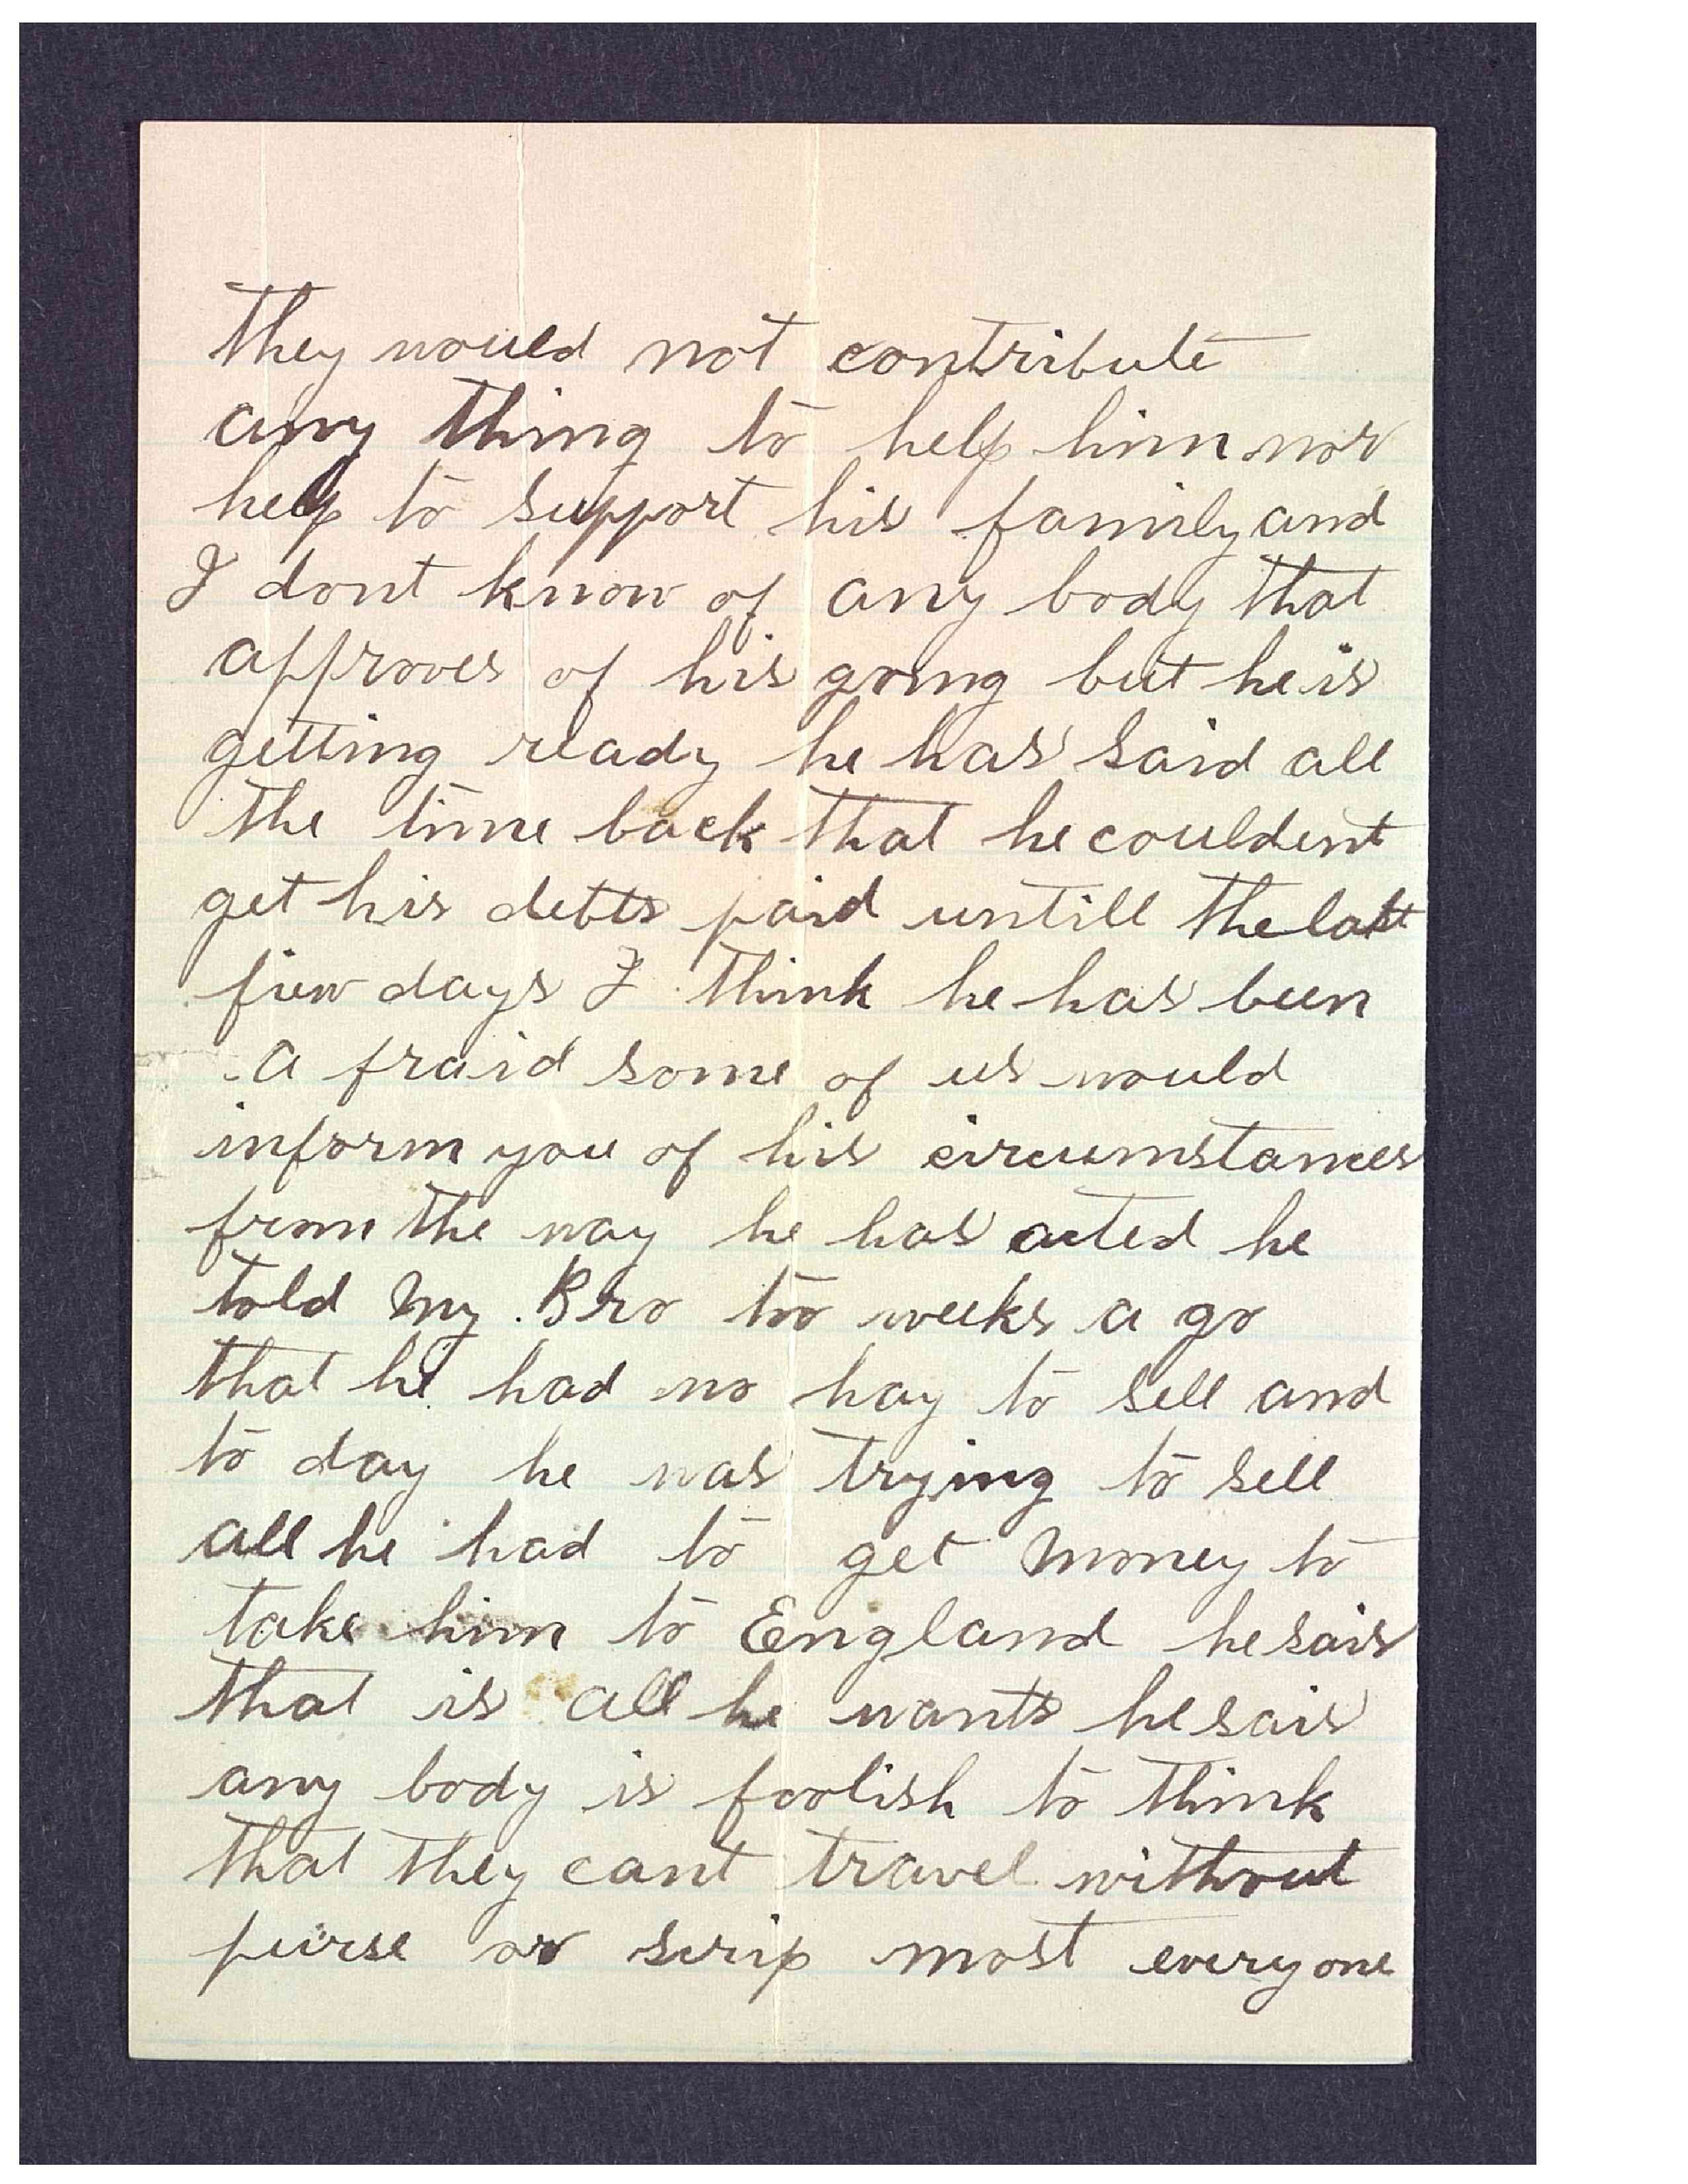 they would not contribute
any thing to help him nor
help to support his family and
I dont know of any body that
approves of his going but he is
getting ready he has said all
the time back that he couldent
get his debts paid untill the last
fiew days I think he has been
a fraid some of us would
inform you of his circumstances
from the way he has acted he
told my Bro too weeks a go
that he had no hay to sell and
to day he was trying to sell
all he had to get money to
take him to England he sais
that is all he wants he sais
any body is foolish to think
that they cant travel without
purse or scrip most everyone